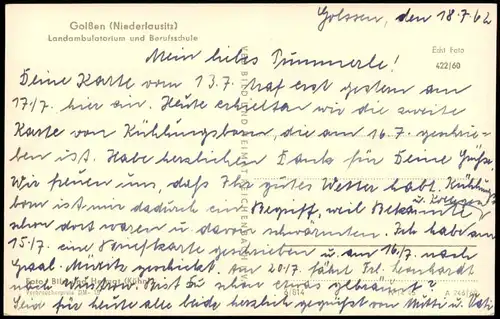 Golßen (Niederlausitz)
Landambulatorium und Berufsschule
Golssen, den 18.7.62
Echt Foto
422/60
Mein liebes Pummerle!
Deine Karte vom 13.7. traf erst gestern am
17/7. hier ein. Heute erhielten wir die zweite
Karte von Kühlungsborn, die am 16.7. geschrie-
ben ist. Habe herzlichen Dank für Deine Grüße.
Wir freuen uns, daß Ihr gutes Wetter habt. Kühlungs-
born ist mir dadurch ein Begriff, weil Bekannte
schon dort waren u. davon schwärmten. Ich habe am
15/7. eine Briefkarte geschrieben u. am 16/7. nach
Graal-Müritz geschickt. Am 20/7. fährt Frl. Leonhardt
nach Hast Du schon etwas gebräunt?
Seid für heute alle beide herzlich gegrüßt von Mutti u. Vati
VEB BILD UND HEIMAT REICHENBACH
6/614